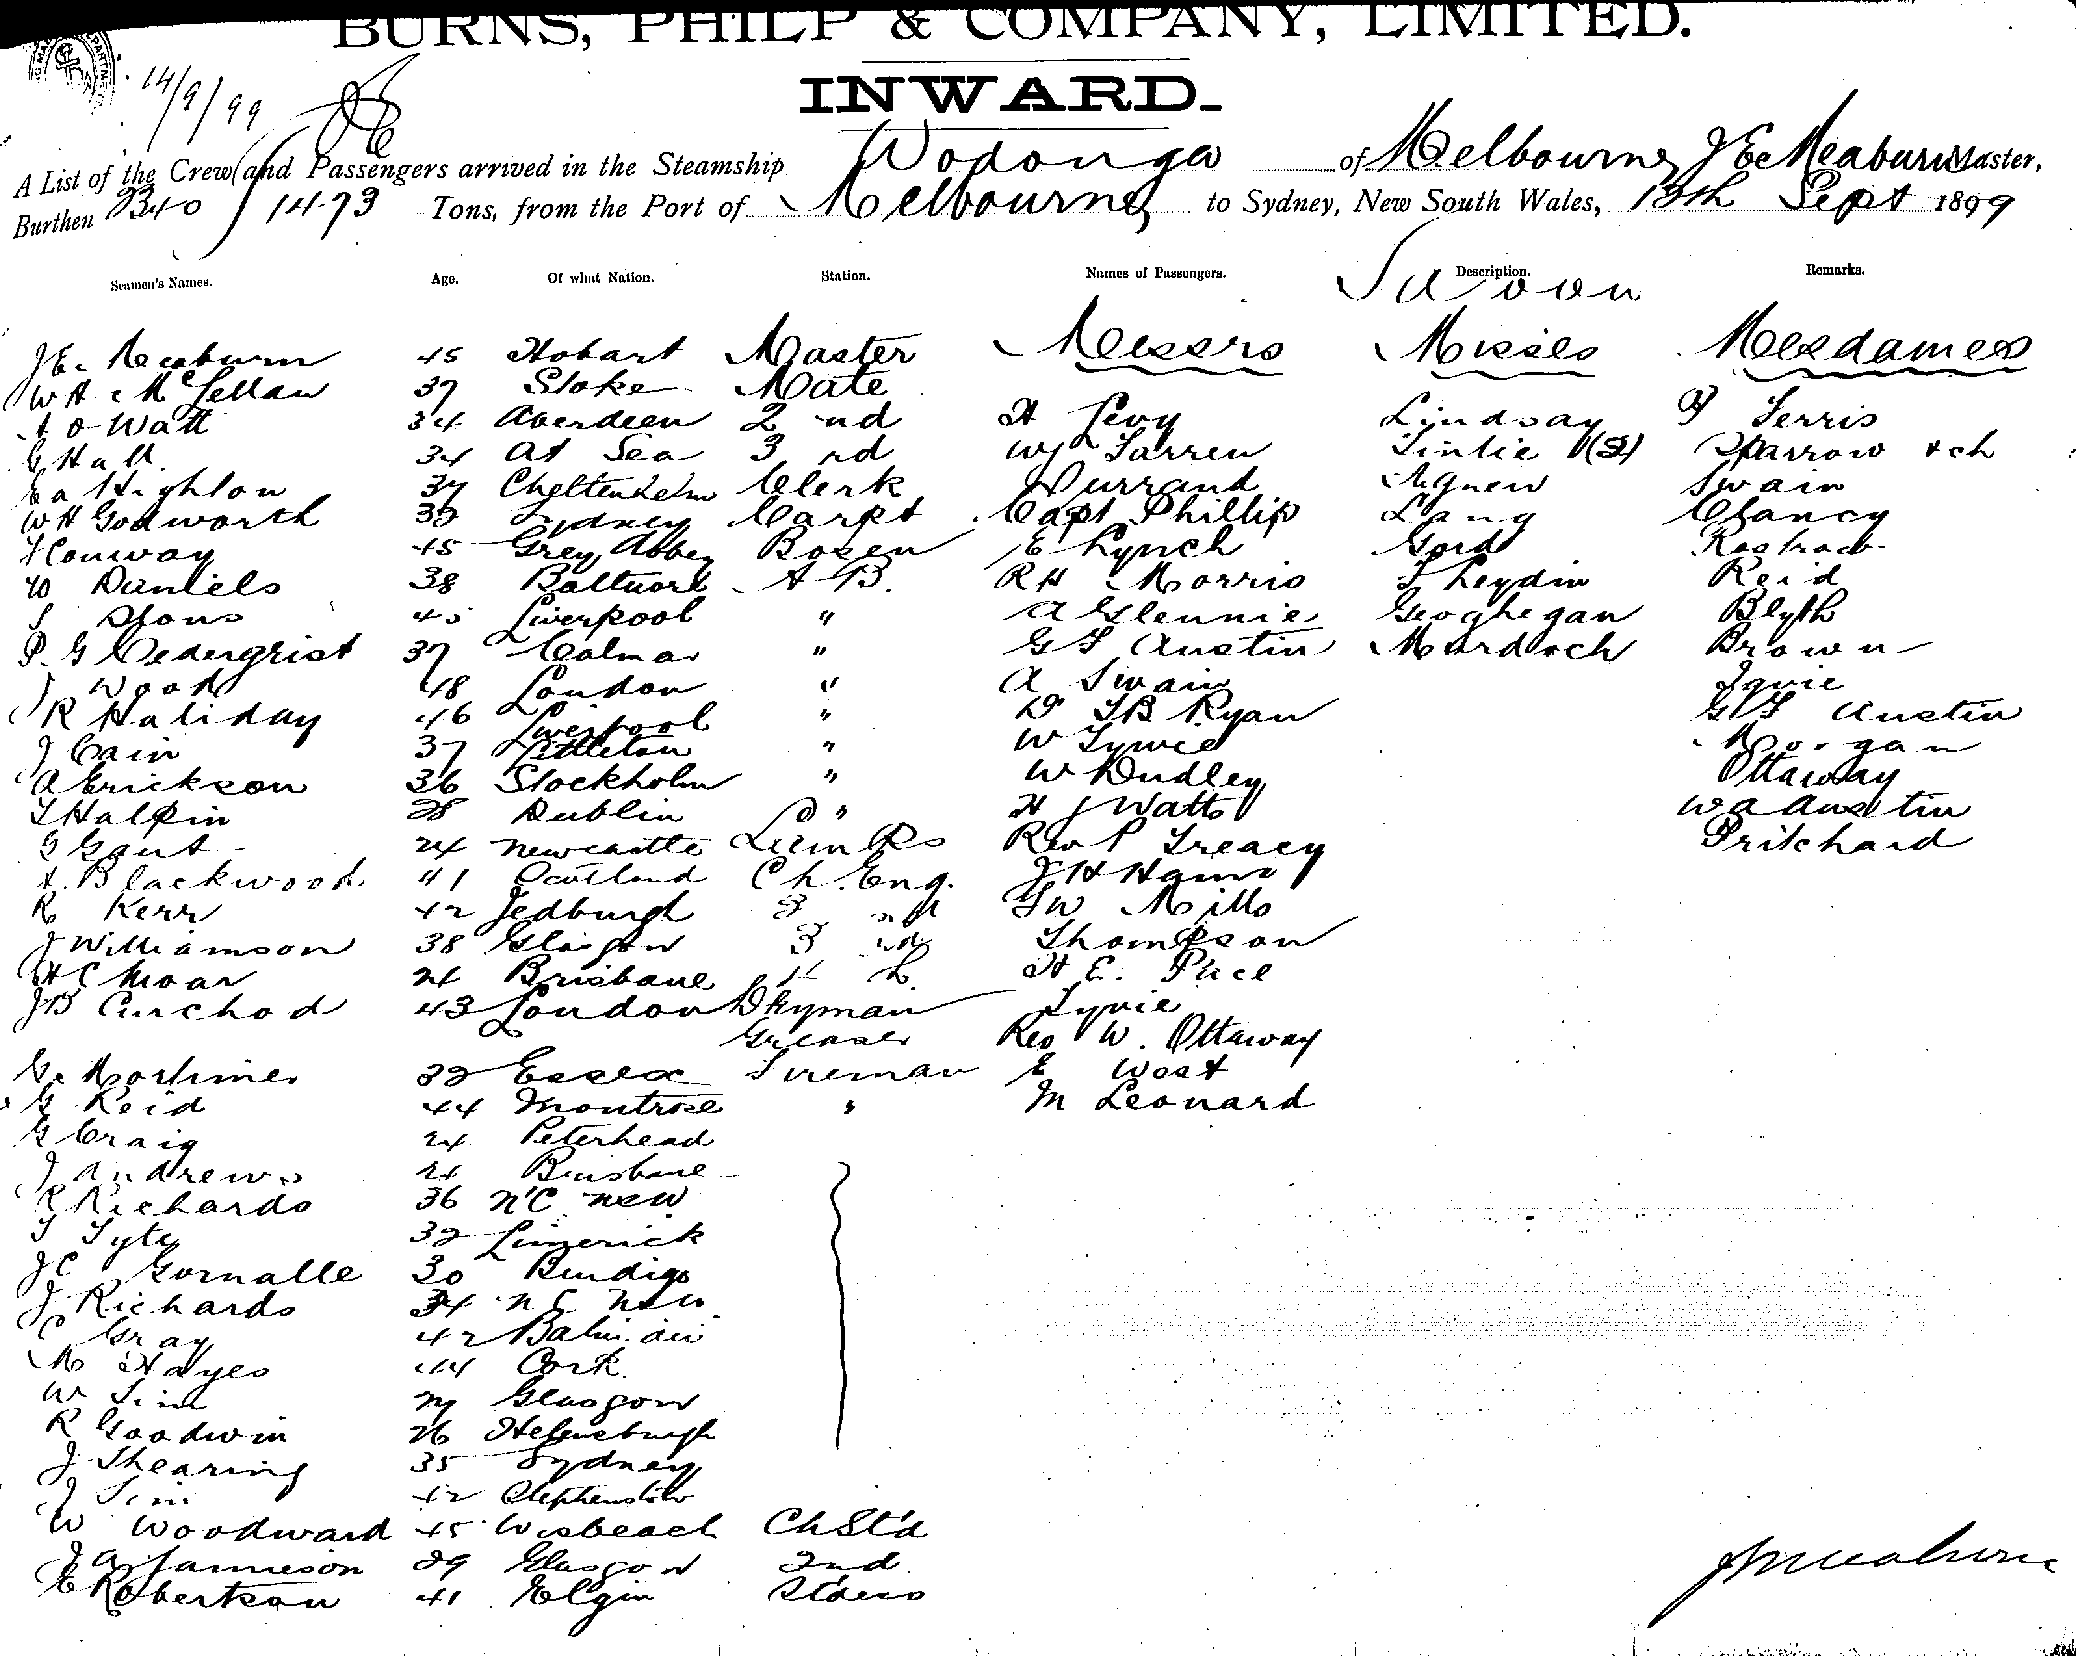 BURNS, PHILP & COMPANY, LIMITED.
INWARD.
14/9/99
A List of the Crew and Passengers arrived in the Steamship Wodonga of Melbourne, J E Meaburn Master,
Burthen 2340 / 1473 Tons, from the Port of Melbourne to Sydney, New South Wales, 13th Sept 1899
Seamen's Names. Age. Of what Nation. Station. Names of Passengers. Description. Remarks.
Saloon
J E Meaburn 45 Hobart Master Messrs Misses Mesdames
W H McLellan 37 Stoke Mate
A O Watt 34 Aberdeen 2nd H Levy Lindsay Ferris
G Hall 34 At Sea 3rd W J Farren Tintie (2) Sparrow & ch
E A Highton 37 Cheltenham Clerk Durrand Agnew Swain
W H Godworth 33 Sydney Carpt Capt Phillip Lang Clancy
Conway 45 Grey Abbey Bosen E Lynch Gord
W Daniels 38 Baltimore A B. R H Morris T Leydin Reid
45 Liverpool " A Glennie Geoghegan Blyth
P. G Cedergrist 37 Calmar " G F Austin Murdoch Brown
J Wood 48 London " A Swain
R Haliday 46 Liverpool " Dr T B Ryan G F Austin
J Cain 37 " W Morgan
A Erickson 36 Stockholm " W Dudley Ottaway
T Halpin 28 Dublin " H J Watts W A Austin
G Gaut 24 Newcastle Rev P Treacy Pritchard
A. Blackwood 41 Scotland Ch. Eng. J H
R Kerr 42 Jedburgh 2nd F W Mills
J Williamson 38 Glasgow 3rd Thompson
H C Moar 24 Brisbane H E. Pace
J B Curchod 43 London Dkyman
Greaser Rev W. Ottaway
G. Mortimer 32 Essex Fireman E West
G Reid 44 Montrose " M Leonard
G Craig 24 Peterhead
J Andrews 24 Brisbane
R Richards 36 N'C new
T Tyte 32 Limerick
J C Gornalle 30 Bendigo
J Richards 34 N C new
C Gray 42 Balmain
M Hayes 44 Cork
W Sim 27 Glasgow
R Goodwin 26 Helensburgh
J Shearing 35 Sydney
J Sim 42
W Woodward 45 Wisbeach Ch St'd
J A Jamieson 29 Glasgow 2nd
E Robertson 41 Elgin St'dess